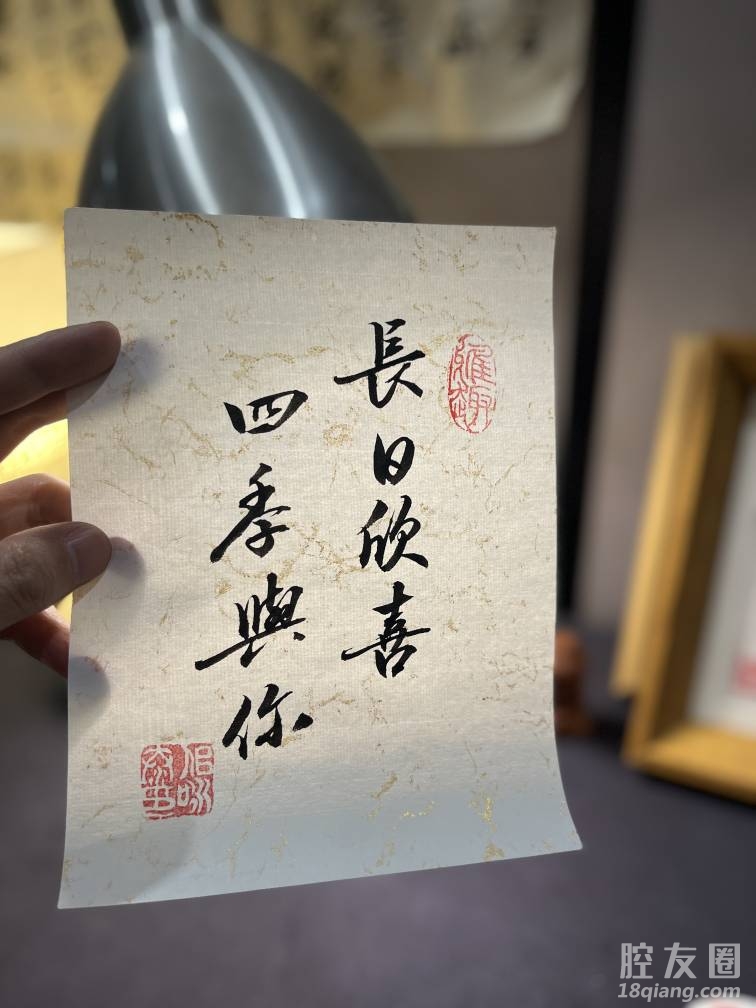 長日欣喜
四季與你
雅趣
腔友圈
18qiang.com